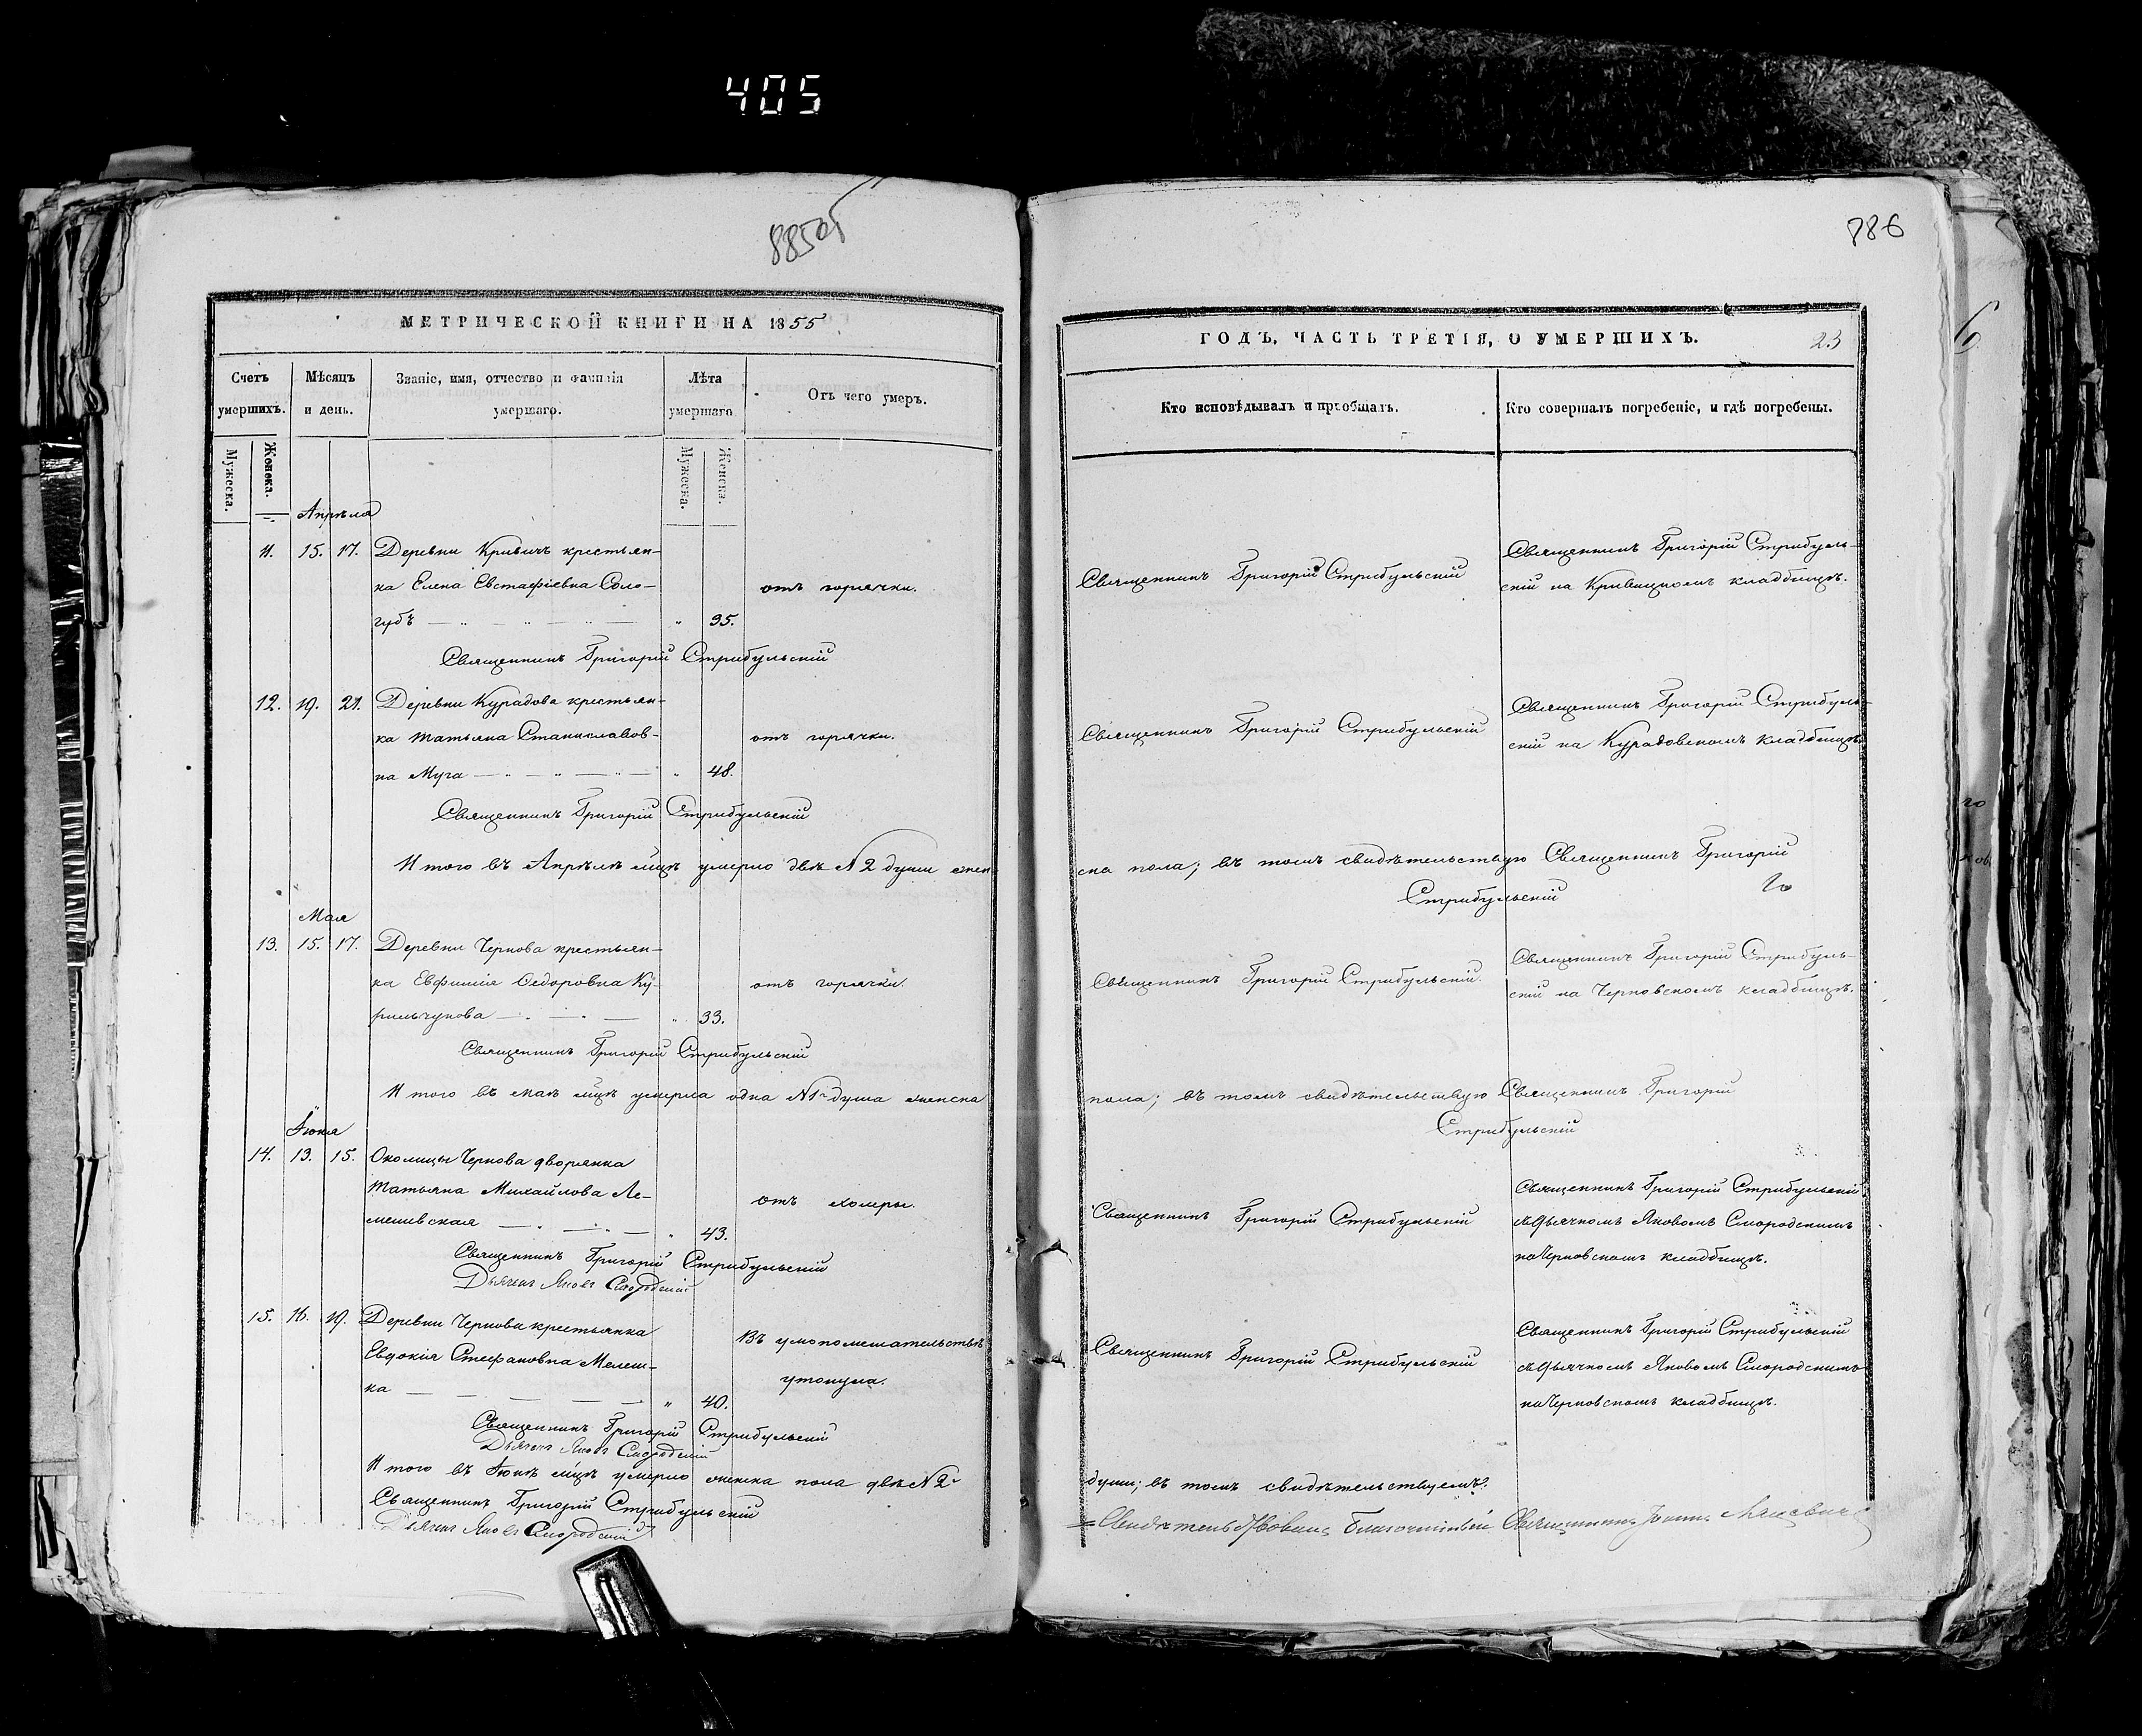 405
885об
786
МЕТРИЧЕСКОЙ КНИГИ НА 1855
Счетъ умершихъ.
Мѣсяцъ и день.
Званіе, имя, отчество и фамилія умершаго.
Лѣта умершаго
Отъ чего умеръ.
Мужеска.
Женска.
Мужеска.
Женска.
Апрѣля
11. 15. 17. Деревни Кривичъ крестьян-
ка Елена Евстафіевна Соло-
отъ горячки.
губъ 35.
Священникъ Григорій Стрибульскій
12. 19. 21. Деревни Курадова крестьян-
ка Татьяна Станиславов-
отъ горячки.
на Муга 48.
Священникъ Григорій Стрибульскій
Итого въ Апрѣлѣ м̃цѣ умерло двѣ №2 души жен-
Мая
13. 15. 17. Деревни Чернова крестьян-
ка Евфимія Ѳедоровна Ку-
отъ горячки.
рильчукова 33.
Священникъ Григорій Стрибульскій
Итого въ маѣ м̃цѣ умерла одна №1 душа женска
Іюня
14. 13. 15. Околицы Чернова дворянка
Татьяна Михайлова Ле-
отъ холеры.
мешевская 43.
Священникъ Григорій Стрибульскій
Дьячекъ Яковъ Смородскій
15. 16. 19. Деревни Чернова крестьянка
Въ умопомешательствѣ
Евдокія Стефановна Мелеш-
утонула.
ка 40.
Священникъ Григорій Стрибульскій
Дьячекъ Яковъ Смородскій
Итого въ Іюнѣ м̃цѣ умерло женска пола двѣ №2
Священникъ Григорій Стрибульскій
Дьячекъ Яковъ Смородскій
ГОДЪ, ЧАСТЬ ТРЕТІЯ, О УМЕРШИХЪ. 23
Кто исповѣдывалъ и пріобщалъ.
Кто совершалъ погребеніе, и гдѣ погребены.
Священникъ Григорій Стрибульскій
Священникъ Григорій Стрибуль-
скій на Кривицкомъ кладбищѣ.
Священникъ Григорій Стрибульскій
Священникъ Григорій Стрибуль-
скій на Курадовскомъ кладбищѣ.
ска пола; въ томъ свидѣтельствую Священникъ Григорій
Стрибульскій
Священникъ Григорій Стрибульскій.
Священникъ Григорій Стрибуль-
скій на Черновскомъ кладбищѣ.
пола; въ томъ свидѣтельствую Священникъ Григорій
Стрибульскій
Священникъ Григорій Стрибульскій
Священникъ Григорій Стрибульскій
съ дьячкомъ Яковомъ Смородскимъ
на Черновскомъ кладбищѣ.
Священникъ Григорій Стрибульскій
Священникъ Григорій Стрибульскій
съ дьячкомъ Яковомъ Смородскимъ
на Черновскомъ кладбищѣ.
души; въ томъ свидѣтельствуемъ.
Свидѣтельствовалъ Благочинный Священникъ Іоаннъ